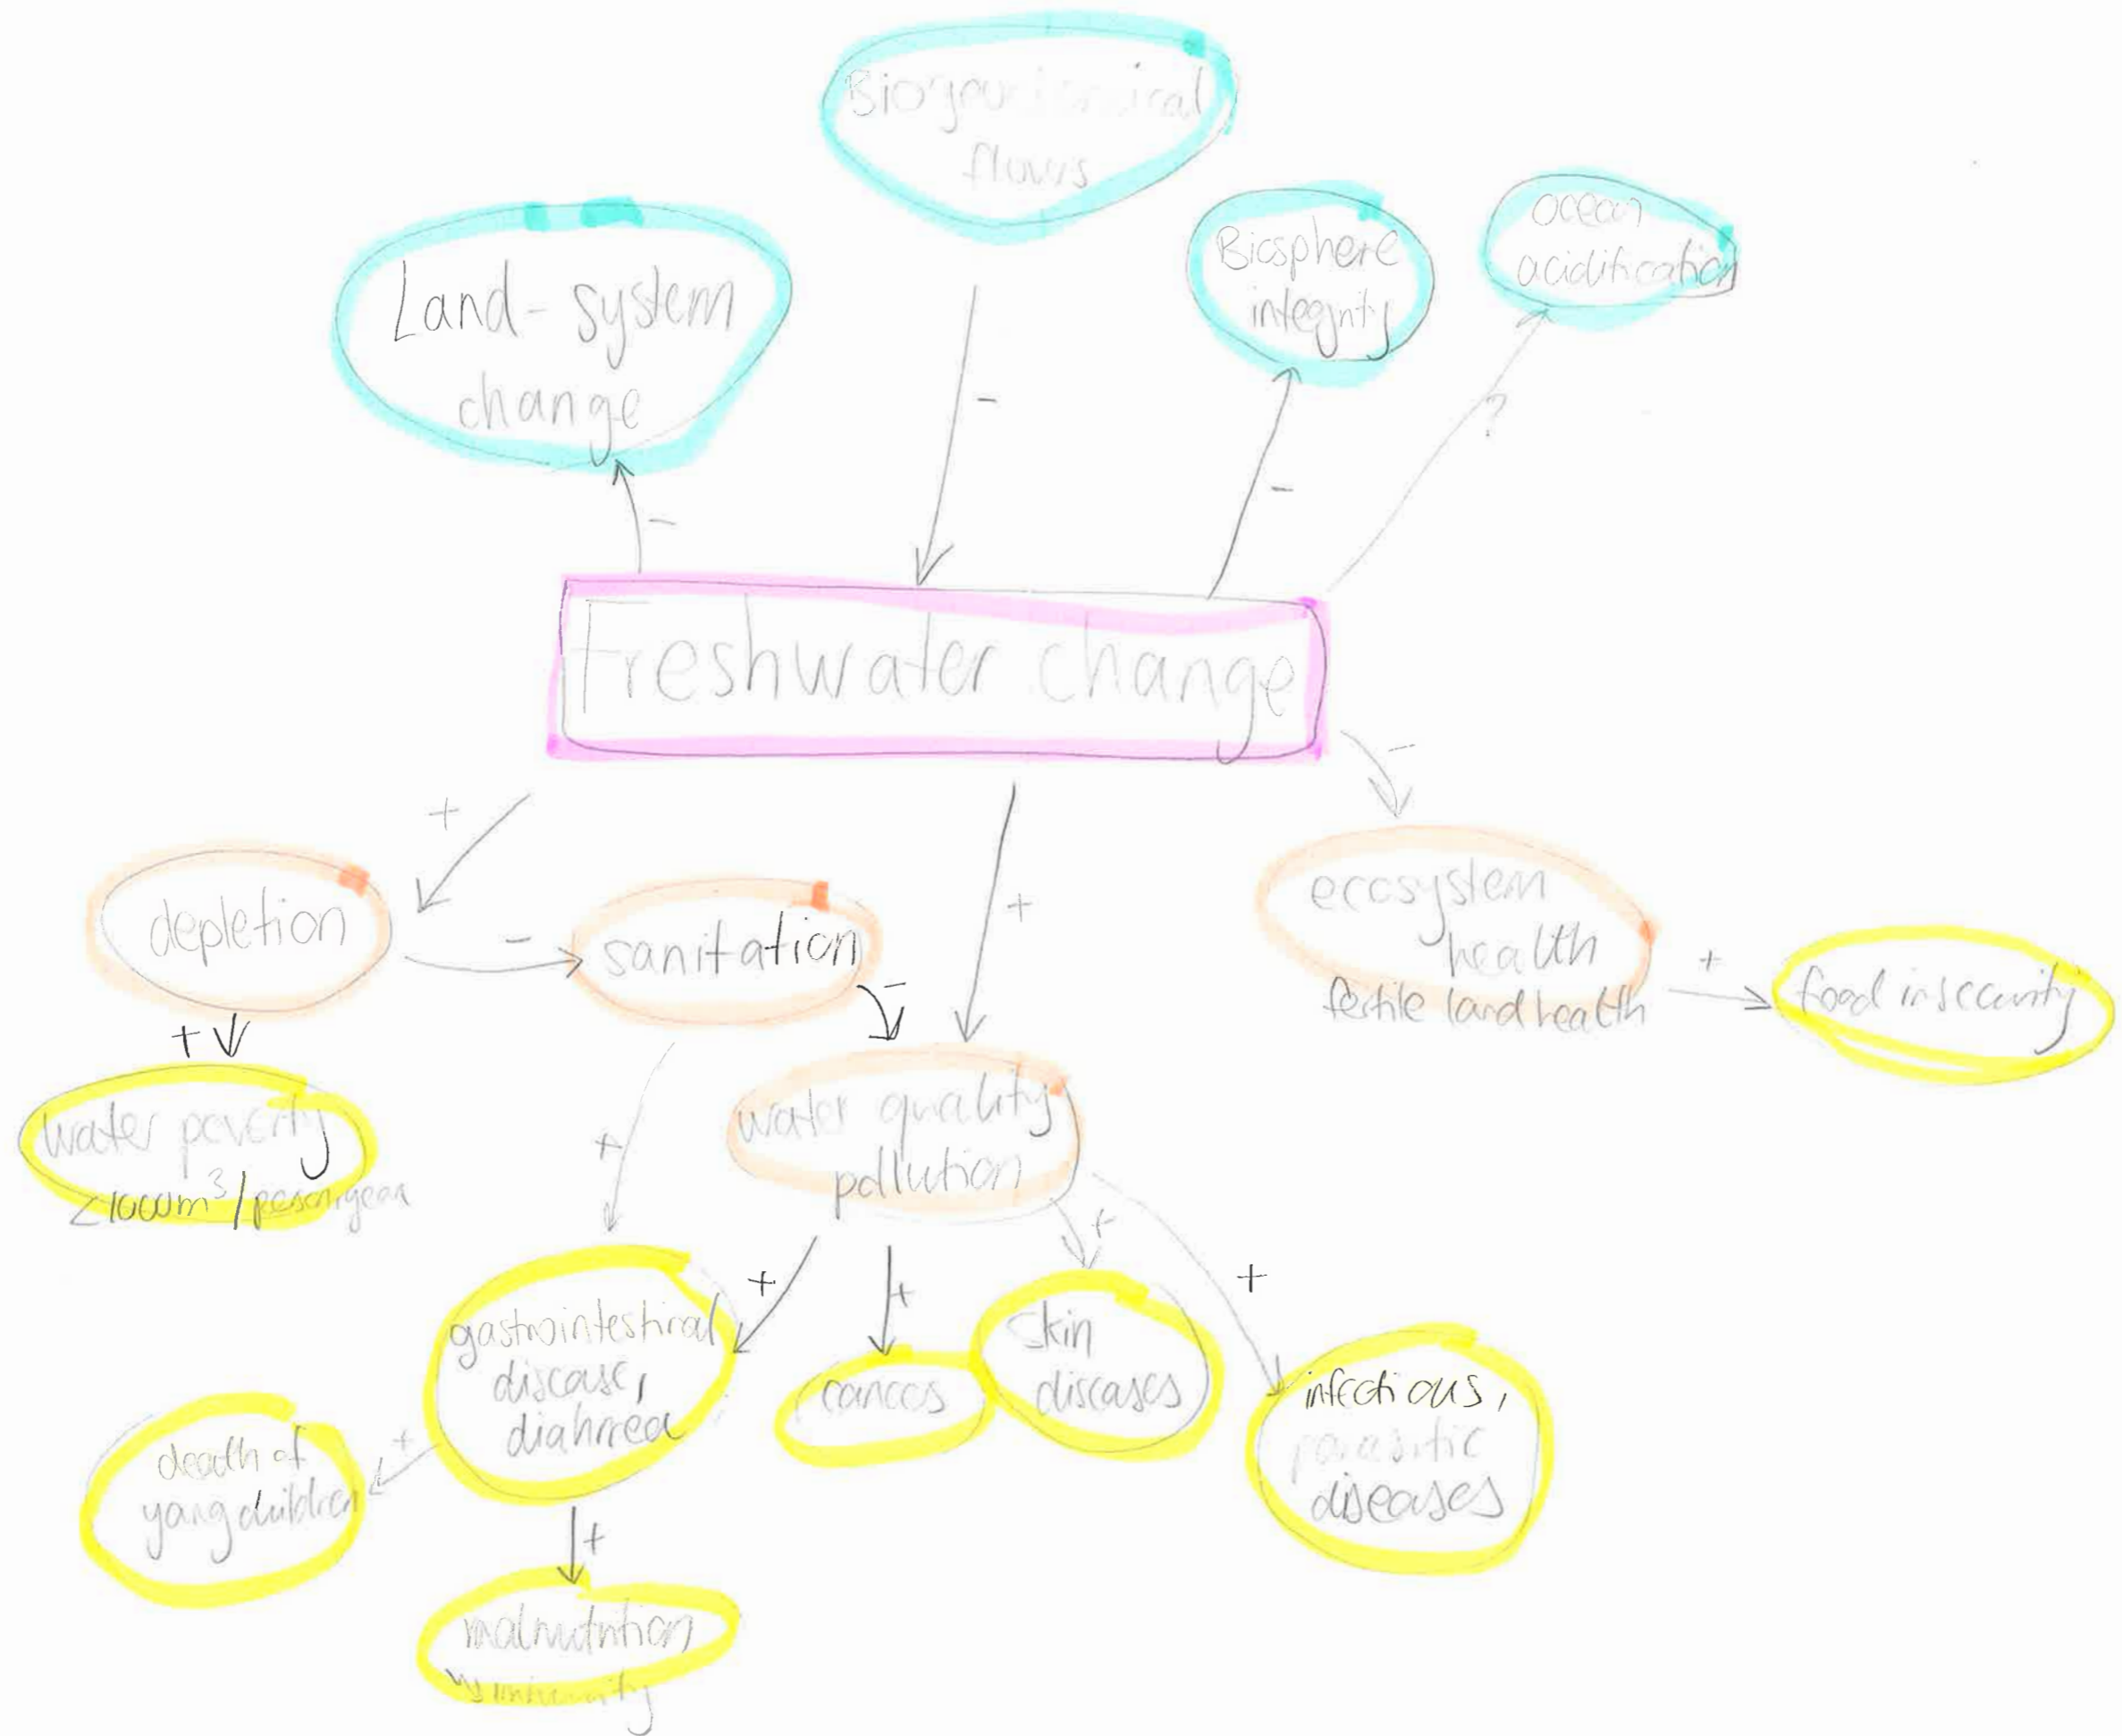 Biogeochemical
flows
Land-system
change
Biosphere
integrity
Ocean
acidification
-
-
-
?
Freshwater change
+
-
depletion
-
sanitation
+
ecosystem
health
fertile land health
+
food insecurity
+
-
water poverty
<1000m³/person,year
+
water quality
pollution
+
+
+
+
gastrointestinal
disease,
diahrrea
cancers
skin
diseases
infectious,
parasitic
diseases
+
death of
yang children
+
malnutrition